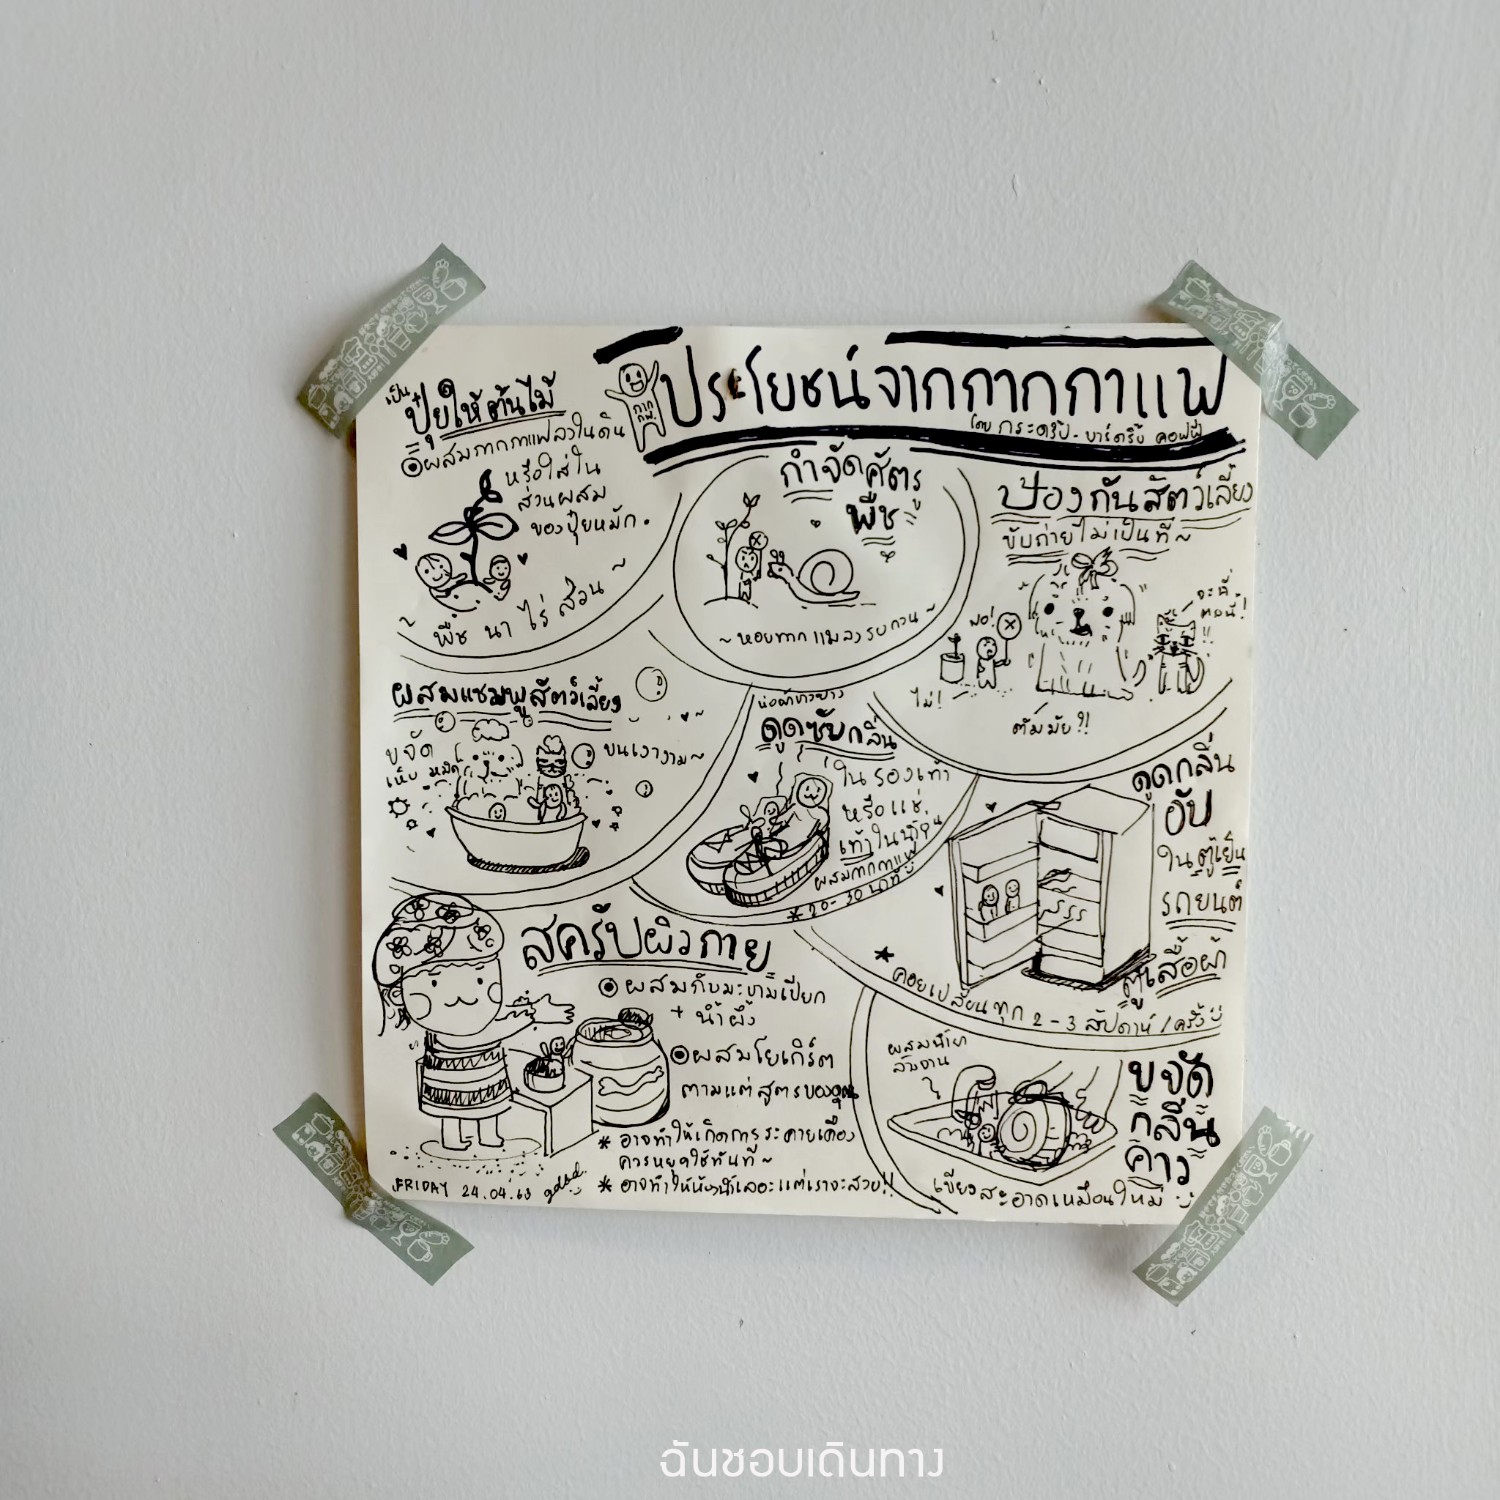 ประโยชน์จากกากกาแฟ
โดย กระดริ๊ป - บาร์ดริ๊ป คอฟฟี่
กาก
กฟ.
เป็น
ปุ๋ยให้ต้นไม้
ผสมกากกาแฟลงในดิน
หรือใส่ใน
ส่วนผสม
ของปุ๋ยหมัก.
~ พืช นา ไร่ สวน ~
กำจัดศัตรู
พืช
~ หอยทาก แมลงรบกวน ~
ป้องกันสัตว์เลี้ยง
ขับถ่ายไม่เป็นที่~
NO!
ไม่!
ทำมัย?!
ผสมแชมพูสัตว์เลี้ยง
ขจัด
เห็บ หมัด
ขนเงางาม~
ห่อผ้าขาวบาง
ดูดซับกลิ่น
ในรองเท้า
หรือแช่
เท้าในน้ำอุ่น
ผสมกากกาแฟ
* 20-30 นาที
ดูดกลิ่น
อับ
ในตู้เย็น
รถยนต์
ตู้เสื้อผ้า
* คอยเปลี่ยนทุก 2-3 สัปดาห์/ครั้ง
สครับผิวกาย
ผสมกับมะขามเปียก
+ น้ำผึ้ง
ผสมโยเกิร์ต
ตามแต่สูตรของคุณ
* อาจทำให้เกิดการระคายเคือง
ควรหยุดใช้ทันที~
* อาจทำให้ห้องน้ำเลอะแต่เราจะสวย!!
ผสมน้ำยา
ล้างจาน
ขจัด
กลิ่น
คาว
เขียงสะอาดเหมือนใหม่
FRIDAY 24.04.63
ฉันชอบเดินทาง